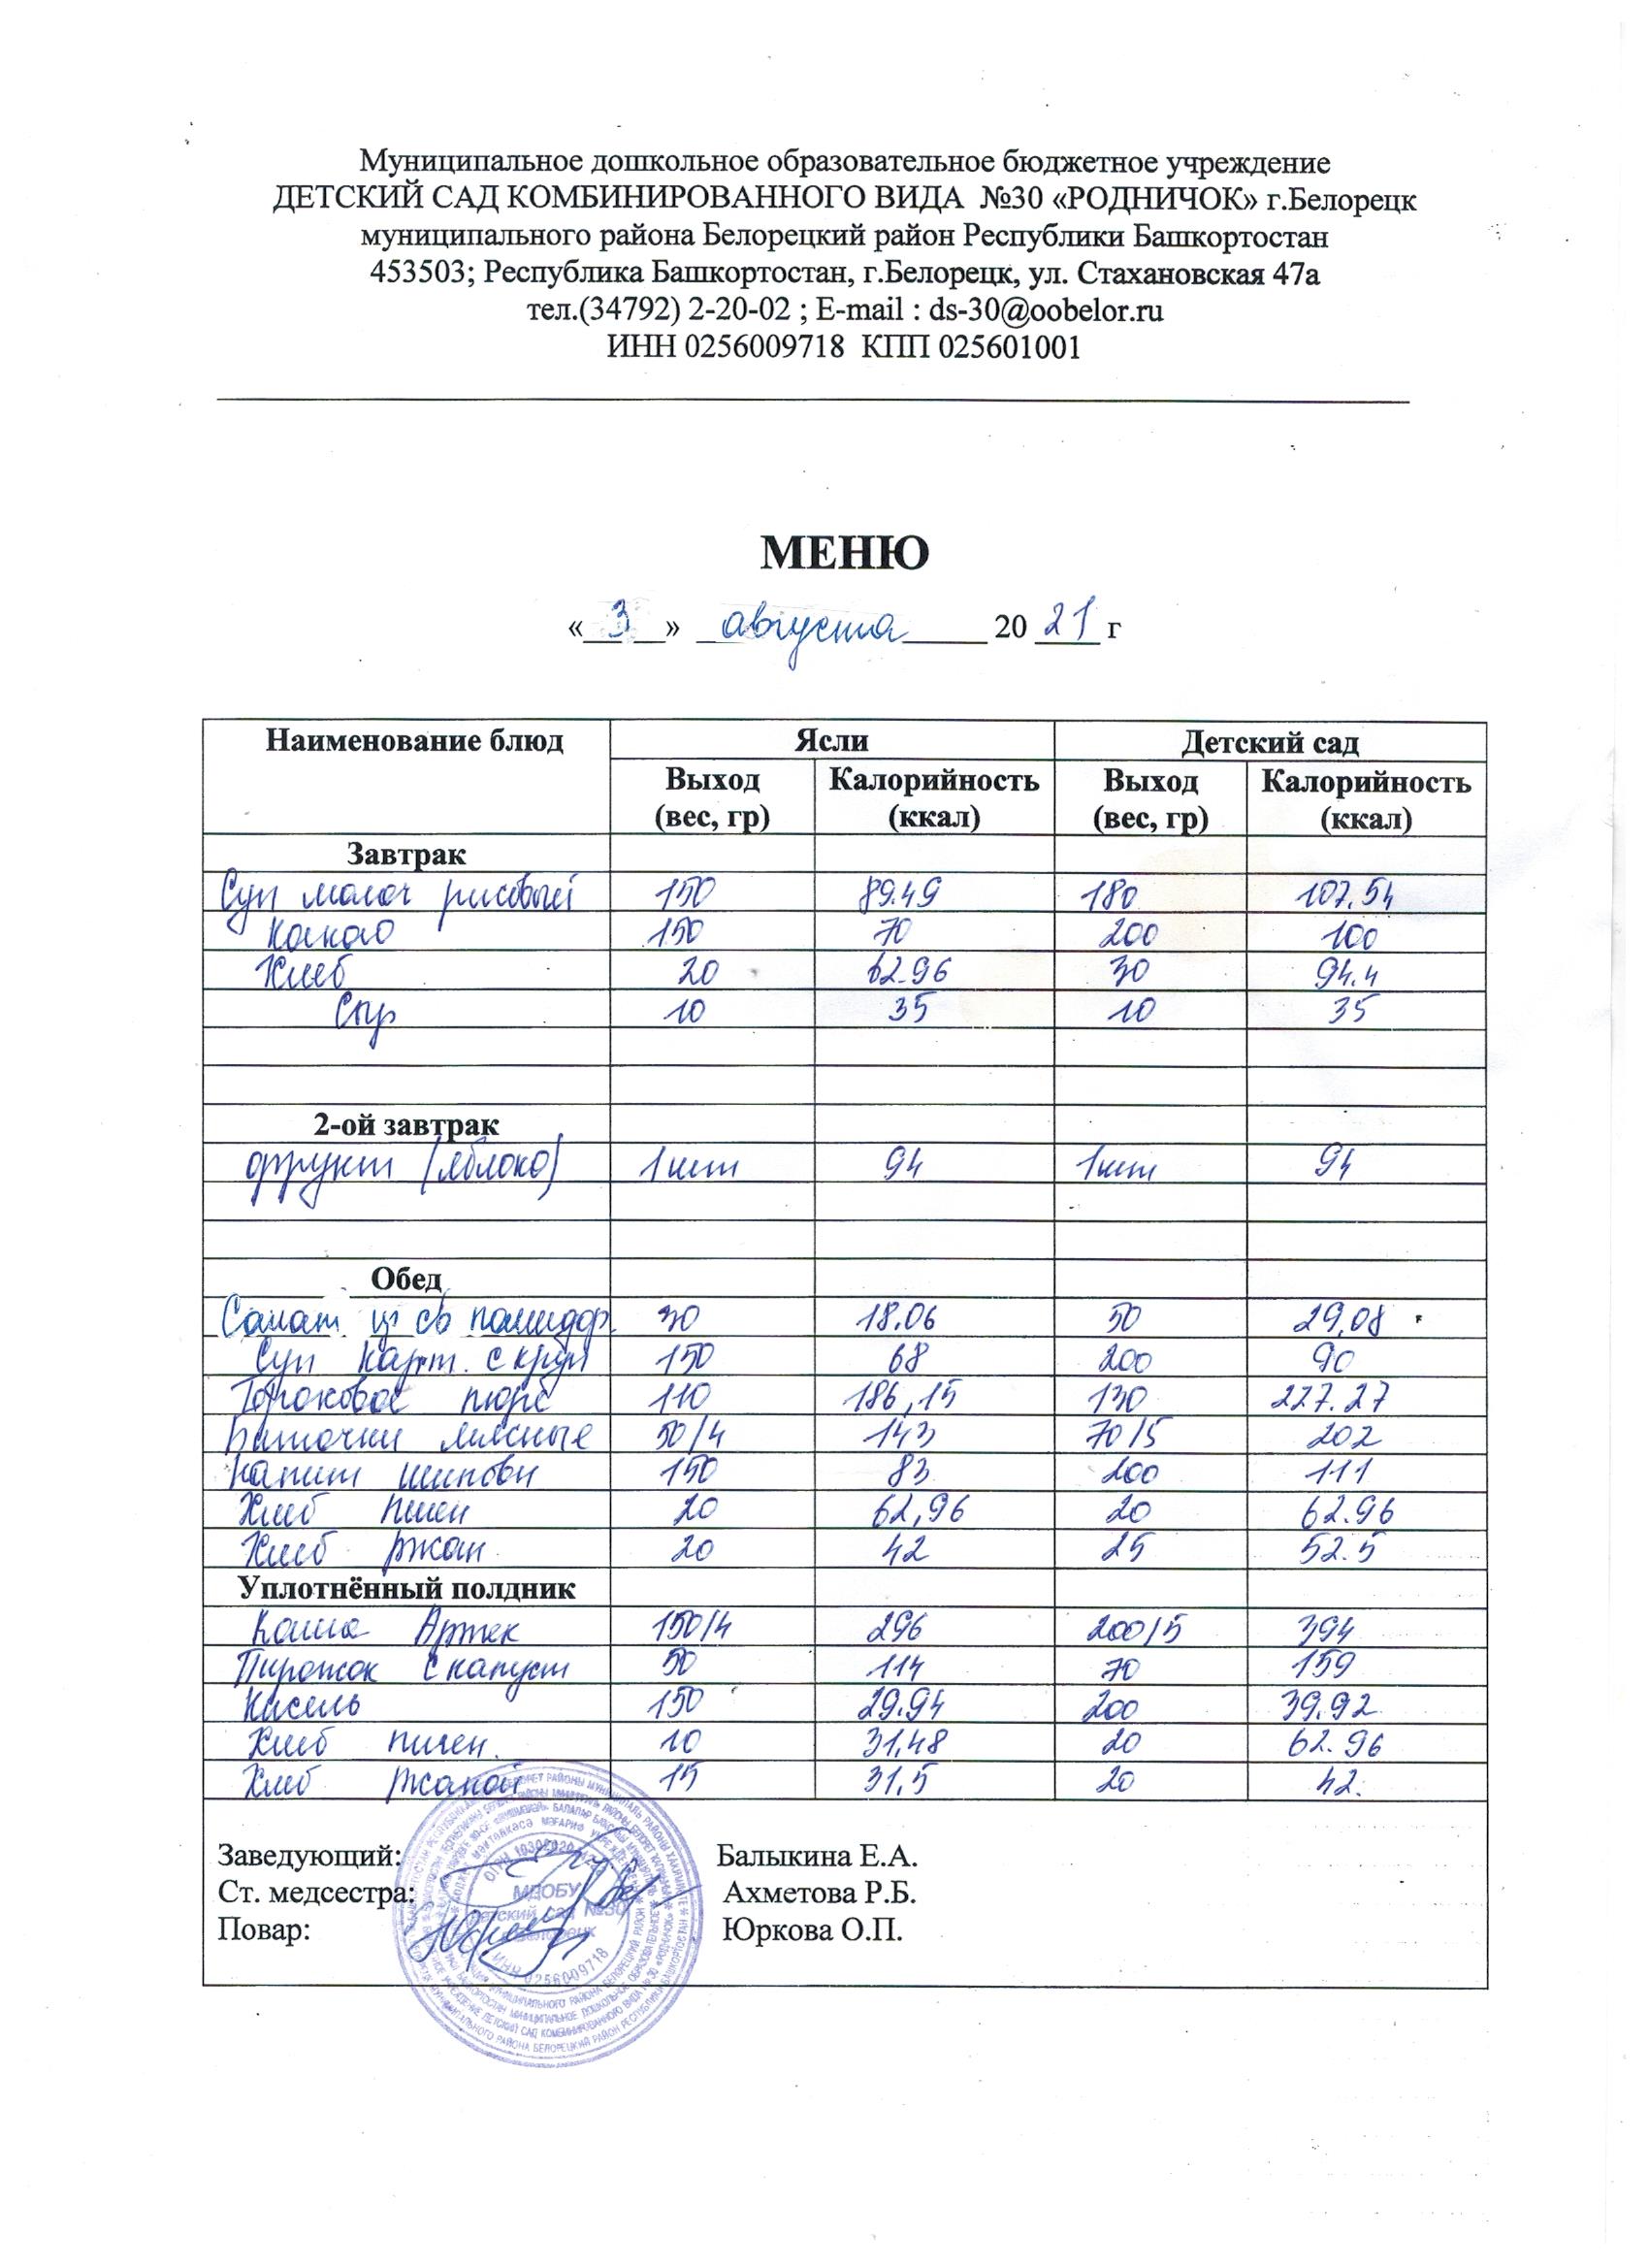 Муниципальное дошкольное образовательное бюджетное учреждение
ДЕТСКИЙ САД КОМБИНИРОВАННОГО ВИДА №30 «РОДНИЧОК» г.Белорецк
муниципального района Белорецкий район Республики Башкортостан
453503; Республика Башкортостан, г.Белорецк, ул. Стахановская 47а
тел.(34792) 2-20-02 ; E-mail : ds-30@oobelor.ru
ИНН 0256009718 КПП 025601001
МЕНЮ
« 3 » августа 20 21 г
Наименование блюд Ясли Детский сад
Выход (вес, гр) Калорийность (ккал) Выход (вес, гр) Калорийность (ккал)
Завтрак
Суп молоч рисовый 150 89.49 180 107.54
Какао 150 70 200 100
Хлеб 20 62.96 30 94.4
Сыр 10 35 10 35
2-ой завтрак
фрукт (яблоко) 1шт 94 1шт 94
Обед
Салат из св помидор. 30 18.06 50 29,08
Суп карт. с круп 150 68 200 90
Гороховое пюре 110 186,15 130 227.27
Биточки мясные 50/4 143 70/5 202
Напит шиповн 150 83 200 111
Хлеб пшен 20 62,96 20 62.96
Хлеб ржан 20 42 25 52.5
Уплотнённый полдник
Каша Артек 150/4 296 200/5 394
Пирожок с капуст 50 114 70 159
Кисель 150 29.94 200 39.92
Хлеб пшен. 10 31,48 20 62.96
Хлеб ржаной 15 31,5 20 42.
Заведующий: Балыкина Е.А.
Ст. медсестра: Ахметова Р.Б.
Повар: Юркова О.П.
МДОБУ
Детский сад №30
г.Белорецк
ИНН 0256009718